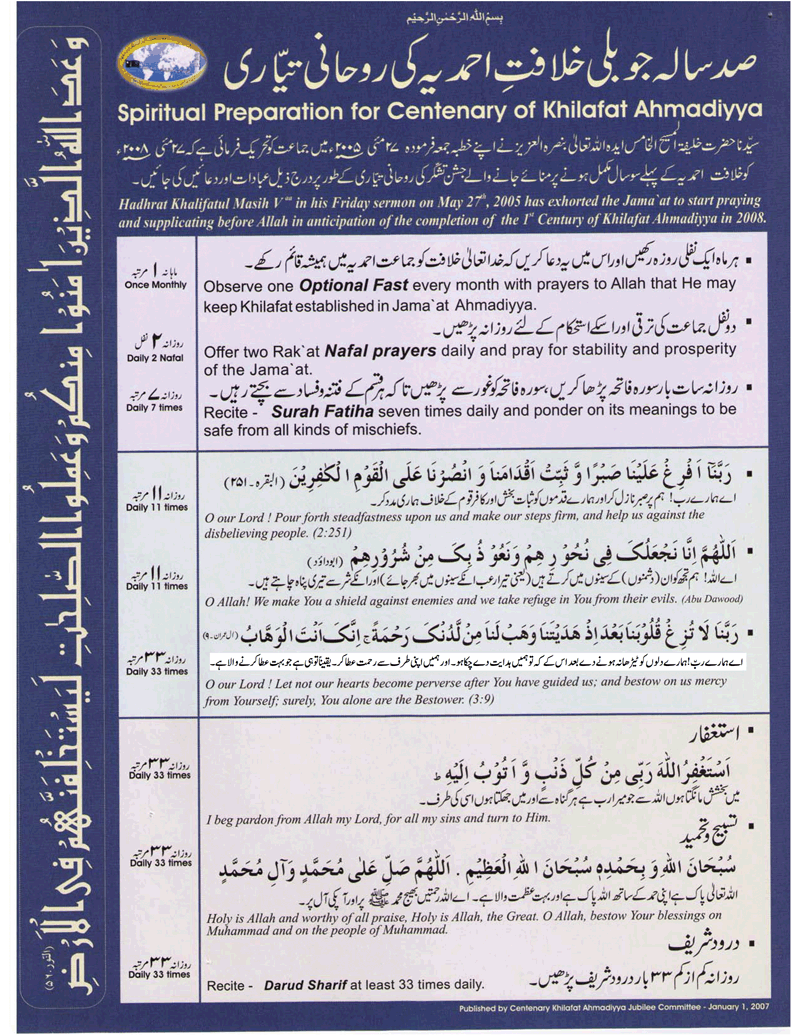 بِسْمِ اللّٰهِ الرَّحْمٰنِ الرَّحِيْمِ
صد سالہ جوبلی خلافتِ احمدیہ کی روحانی تیّاری
Spiritual Preparation for Centenary of Khilafat Ahmadiyya
سیّدنا حضرت خلیفۃ المسیح الخامس ایدہ اللہ تعالیٰ بنصرہ العزیز نے اپنے خطبہ جمعہ فرمودہ ۲۷ مئی ۲۰۰۵ء میں جماعت کو تحریک فرمائی ہے کہ ۲۷ مئی ۲۰۰۸ء
کو خلافت احمدیہ کے پہلے سو سال مکمل ہونے پر منائے جانے والے جشن تشکر کی روحانی تیّاری کے طور پر درج ذیل عبادات اور دعائیں کی جائیں۔
Hadhrat Khalifatul Masih V in his Friday sermon on May 27th, 2005 has exhorted the Jama`at to start praying
and supplicating before Allah in anticipation of the completion of the 1st Century of Khilafat Ahmadiyya in 2008.
وَعَدَ اللّٰهُ الَّذِيْنَ اٰمَنُوْا مِنْكُمْ وَعَمِلُوا الصّٰلِحٰتِ لَيَسْتَخْلِفَنَّهُمْ فِي الْاَرْضِ
(النور ۵۶)
ماہانہ ۱ مرتبہ
Once Monthly
▪ ہر ماہ ایک نفلی روزہ رکھیں اور اس میں یہ دعا کریں کہ خدا تعالیٰ خلافت کو جماعت احمدیہ میں ہمیشہ قائم رکھے۔
Observe one Optional Fast every month with prayers to Allah that He may
keep Khilafat established in Jama`at Ahmadiyya.
روزانہ ۲ نفل
Daily 2 Nafal
▪ دو نفل جماعت کی ترقی اور اسکے استحکام کے لئے روزانہ پڑھیں۔
Offer two Rak`at Nafal prayers daily and pray for stability and prosperity
of the Jama`at.
روزانہ ۷ مرتبہ
Daily 7 times
▪ روزانہ سات بار سورہ فاتحہ پڑھا کریں، سورہ فاتحہ کو غور سے پڑھیں تاکہ ہر قسم کے فتنہ و فساد سے بچتے رہیں۔
Recite - Surah Fatiha seven times daily and ponder on its meanings to be
safe from all kinds of mischiefs.
روزانہ ۱۱ مرتبہ
Daily 11 times
▪ رَبَّنَآ اَفْرِغْ عَلَيْنَا صَبْرًا وَّ ثَبِّتْ اَقْدَامَنَا وَ انْصُرْنَا عَلَى الْقَوْمِ الْكٰفِرِيْنَ (البقرہ۔۲۵۱)
اے ہمارے رب! ہم پر صبر نازل کر اور ہمارے قدموں کو ثبات بخش اور کافر قوم کے خلاف ہماری مدد کر۔
O our Lord ! Pour forth steadfastness upon us and make our steps firm, and help us against the
disbelieving people. (2:251)
روزانہ ۱۱ مرتبہ
Daily 11 times
▪ اَللّٰهُمَّ اِنَّا نَجْعَلُكَ فِى نُحُوْرِهِمْ وَنَعُوْذُ بِكَ مِنْ شُرُوْرِهِمْ (ابوداؤد)
اے اللہ! ہم تجھ کو ان (دشمنوں) کے سینوں میں کرتے ہیں (یعنی تیرا رعب انکے سینوں میں بھر جائے) اور انکے شر سے تیری پناہ چاہتے ہیں۔
O Allah! We make You a shield against enemies and we take refuge in You from their evils. (Abu Dawood)
روزانہ ۳۳ مرتبہ
Daily 33 times
▪ رَبَّنَا لَا تُزِغْ قُلُوْبَنَا بَعْدَ اِذْ هَدَيْتَنَا وَهَبْ لَنَا مِنْ لَّدُنْكَ رَحْمَةً ۚ اِنَّكَ اَنْتَ الْوَهَّابُ (آل عمران۔۹)
اے ہمارے ربّ! ہمارے دلوں کو ٹیڑھا نہ ہونے دے بعد اس کے کہ تو ہمیں ہدایت دے چکا ہو۔ اور ہمیں اپنی طرف سے رحمت عطا کر۔ یقیناً تو ہی ہے جو بہت عطا کرنے والا ہے۔
O our Lord ! Let not our hearts become perverse after You have guided us; and bestow on us mercy
from Yourself; surely, You alone are the Bestower. (3:9)
▪ استغفار
روزانہ ۳۳ مرتبہ
Daily 33 times
اَسْتَغْفِرُ اللّٰهَ رَبِّىْ مِنْ كُلِّ ذَنْبٍ وَّ اَتُوْبُ اِلَيْهِ ط
میں بخشش مانگتا ہوں اللہ سے جو میرا رب ہے ہر گناہ سے اور میں جھکتا ہوں اسی کی طرف۔
I beg pardon from Allah my Lord, for all my sins and turn to Him.
▪ تسبیح و تحمید
روزانہ ۳۳ مرتبہ
Daily 33 times
سُبْحَانَ اللّٰهِ وَ بِحَمْدِهٖ سُبْحَانَ اللّٰهِ الْعَظِيْمِ . اَللّٰهُمَّ صَلِّ عَلٰى مُحَمَّدٍ وَّآلِ مُحَمَّدٍ
اللہ تعالیٰ پاک ہے اپنی حمد کے ساتھ اللہ پاک ہے اور بہت عظمت والا ہے۔ اے اللہ رحمتیں بھیج محمد ﷺ پر اور آپکی آل پر۔
Holy is Allah and worthy of all praise, Holy is Allah, the Great. O Allah, bestow Your blessings on
Muhammad and on the people of Muhammad.
▪ درود شریف
روزانہ ۳۳ مرتبہ
Daily 33 times
روزانہ کم از کم ۳۳ بار درود شریف پڑھیں۔
Recite - Darud Sharif at least 33 times daily.
Published by Centenary Khilafat Ahmadiyya Jubilee Committee - January 1, 2007